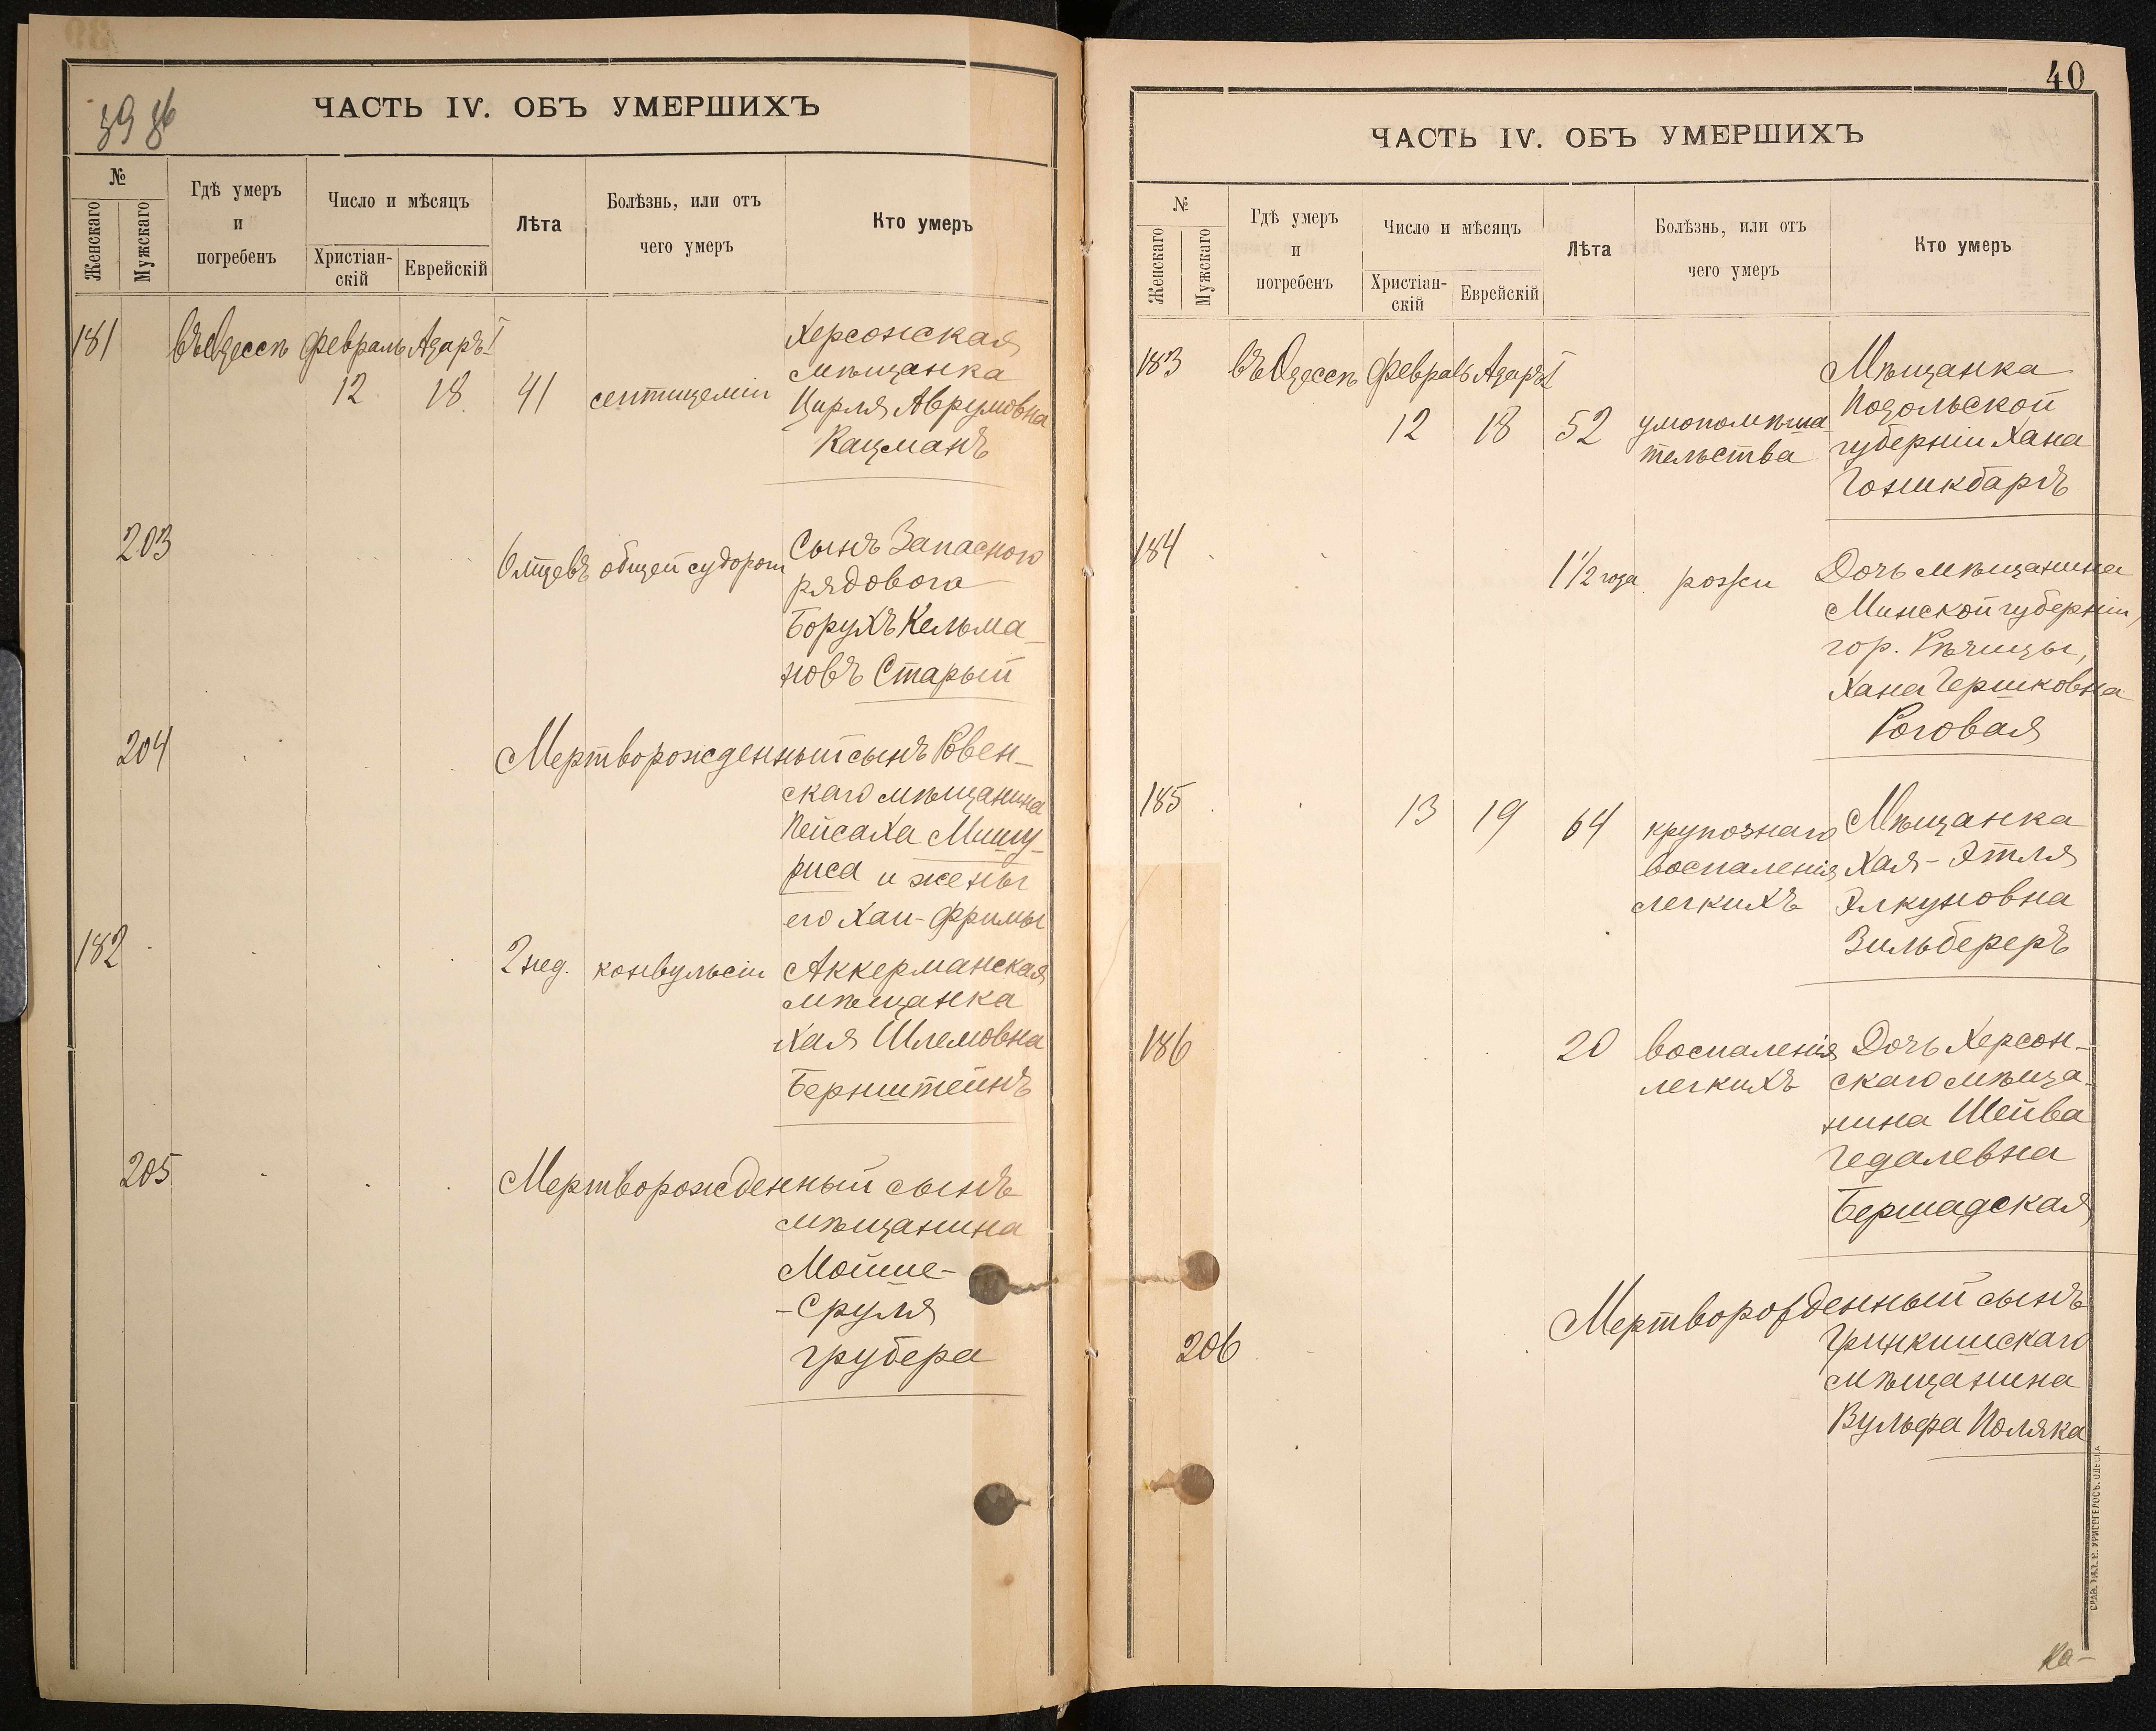 39 зб
ЧАСТЬ IV. ОБЪ УМЕРШИХЪ
№
Женскаго
Мужскаго
Гдѣ умеръ
и
погребенъ
Число и мѣсяцъ
Христіан-
скій
Еврейскій
Лѣта
Болѣзнь, или отъ
чего умеръ
Кто умеръ
181 въ Одессѣ Февраль Адаръ I Херсонская
12 18 41 септицеміи мѣщанка
Цирля Аврумовна
Кацманъ
203 6 мѣсцевъ общей судороги Сынъ Запасного
рядового
Борухъ Кельма-
новъ Старый
204 Мертворожденный сынъ Ровен-
скаго мѣщанина
Пейсаха Мишу-
риса и жены
его Хаи-Фримы
182 2 нед. конвульсіи Аккерманская
мѣщанка
Хая Шлемовна
Бернштейнъ
205 Мертворожденный сынъ
мѣщанина
Мойше-
-Сруля
Грубера
40
ЧАСТЬ IV. ОБЪ УМЕРШИХЪ
№
Женскаго
Мужскаго
Гдѣ умеръ
и
погребенъ
Число и мѣсяцъ
Христіан-
скій
Еврейскій
Лѣта
Болѣзнь, или отъ
чего умеръ
Кто умеръ
183 въ Одессѣ Февраль Адаръ I Мѣщанка
12 18 52 умопомѣша- Подольской
тельства губерніи Хана
Гоникбаргъ
184 1 1/2 года рожи Дочь мѣщанина
Минской губерніи,
гор. Рѣчицы,
Хана Гершковна
Роговая
185 13 19 64 крупознаго Мѣщанка
воспаленія Хая-Этля
легкихъ Элкуновна
Зильбереръ
186 20 воспаленія Дочь Херсон-
легкихъ скаго мѣща-
нина Шейва
Гедалевна
Бершадская
206 Мертворожденный сынъ
Гринкишскаго
мѣщанина
Вульфа Поляка
Ка-